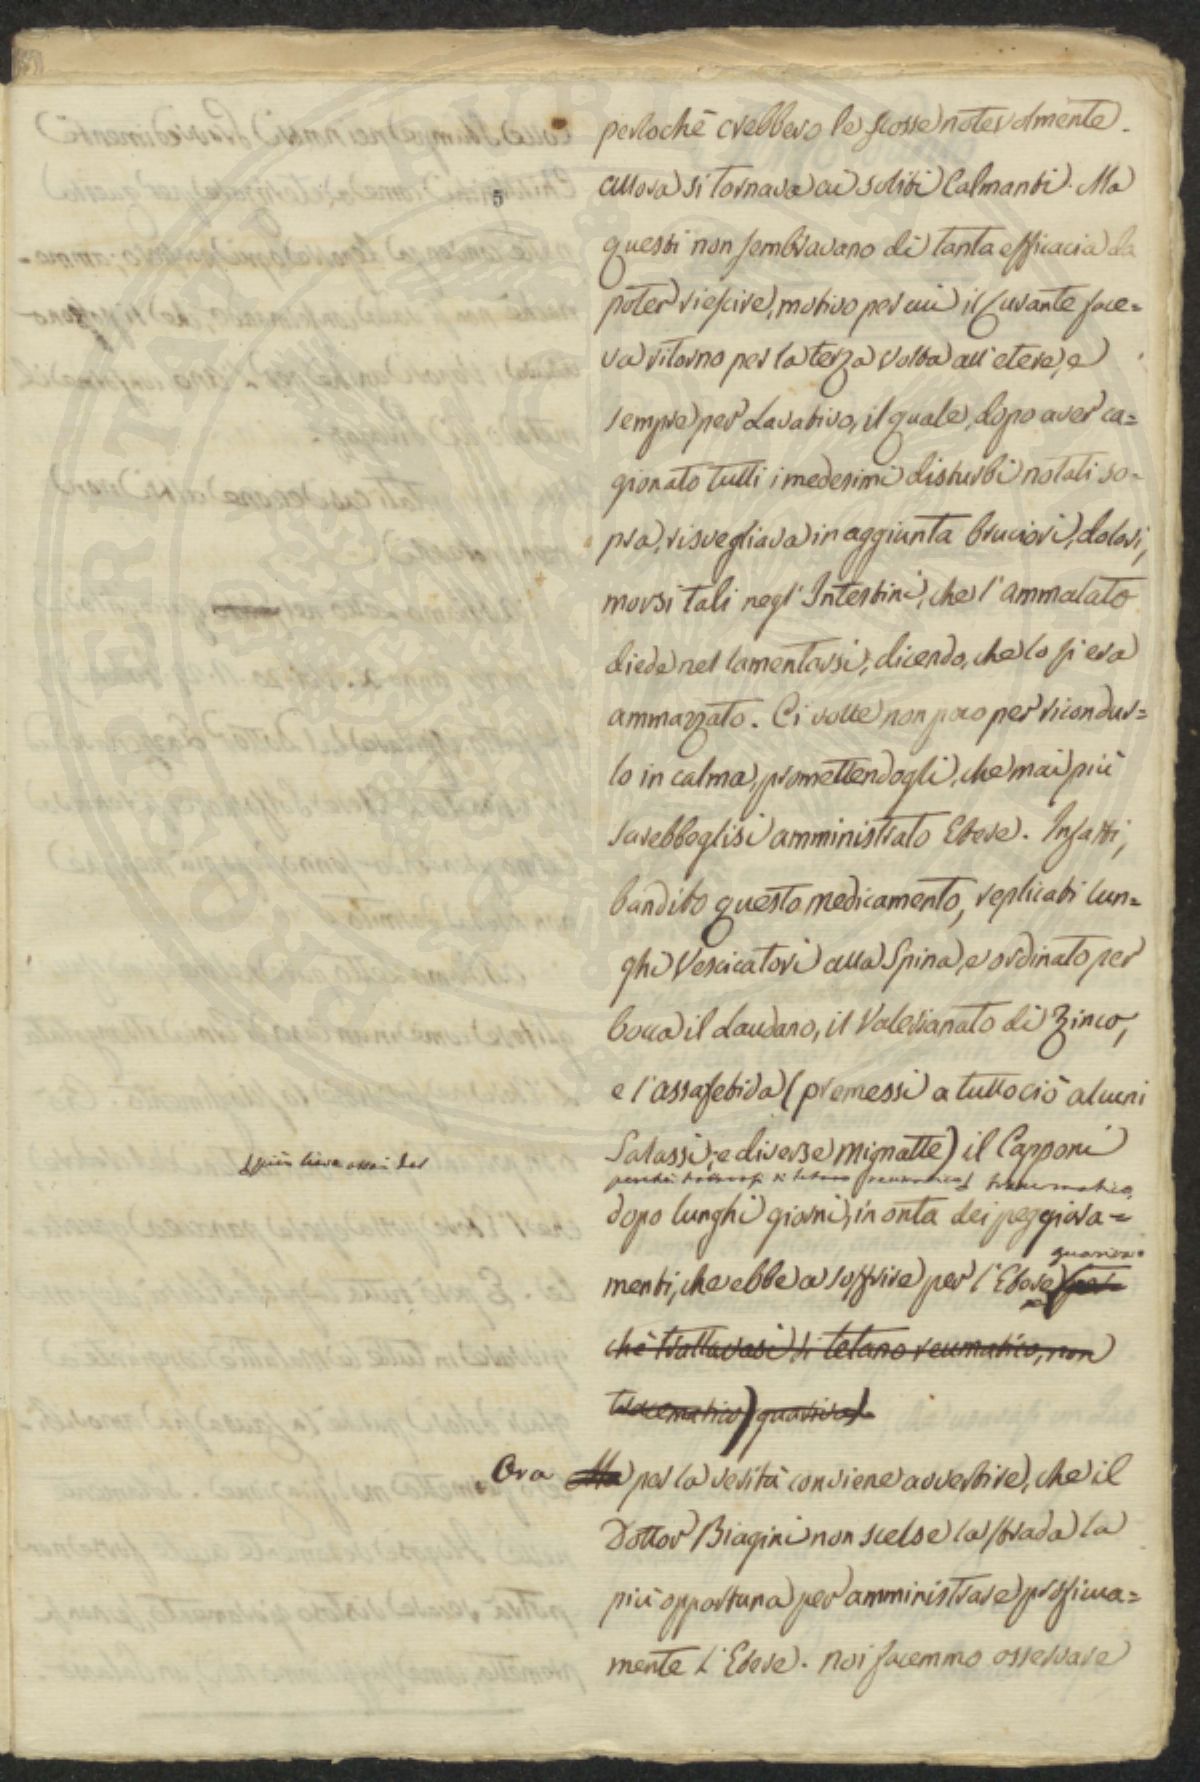 5
perlochè crebbero le scosse notevolmente.
allora si tornava ai soliti Calmanti. Ma
questi non sembravano di tanta efficacia da
poter riescire, motivo per cui il Curante face=
va ritorno per la terza volta all'etere, e
sempre per Lavativo, il quale, dopo aver ca=
gionato tutti i medesimi disturbi notati so-
pra, risvegliava in aggiunta bruciori, dolori,
morsi tali negl'Intestini, che l'ammalato
diede nel lamentarsi, dicendo, che lo si era
ammazzato. Ci volle non poco per ricondur=
lo in calma, promettendogli, che mai più
sarebbeglisi amministrato Etere. Infatti,
bandito questo medicamento, replicati lun=
ghi Vescicatori alla Spina, e ordinato per
bocca il Laudano, il Valerianato di Zinco,
e l'assafetida (premessi a tuttociò alcuni
Salassi, e diverse mignatte) il Capponi
perchè trattavasi di tetano reumatico traumatico
dopo lunghi giorni, in onta dei peggiora=
guariva
menti, che ebbe a soffrire per l'Etere (per=
chè trattavasi di tetano reumatico, non
traumatico) guariva.
Ora Ma per la verità conviene avvertire, che il
Dottor Biagini non scelse la strada la
più opportuna per amministrare proficua=
mente l'Etere. Noi facemmo osservare